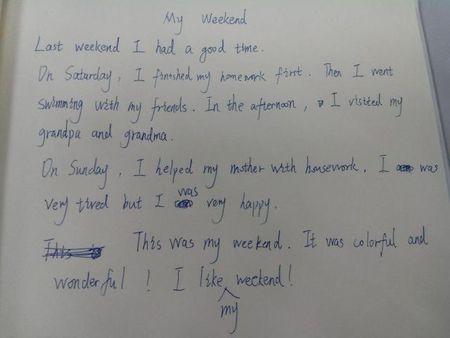 My Weekend
Last weekend I had a good time.
On Saturday, I finished my homework first. Then I went
swimming with my friends. In the afternoon, I visited my
grandpa and grandma.
On Sunday, I helped my mother with housework. I was
very tired but I was very happy.
This was my weekend. It was colorful and
wonderful! I like my weekend!